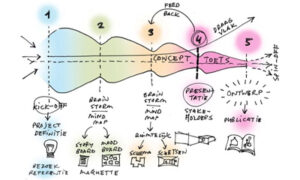 FEED
BACK
DRAAG
VLAK
1
2
3
4
5
CONCEPT
TOETS
KICK-OFF
PROJECT
DEFINITIE
BEZOEK
REFERENTIE
BRAIN
STORM
MIND
MAP
STORY
BOARD
MOOD
BOARD
MAQUETTE
BRAIN
STORM
MIND
MAP
RUIMTELIJK
SCHEMA
SCHETSEN
PRESEN
TATIE
STAKE-
HOLDERS
ONTWERP
PUBLICATIE